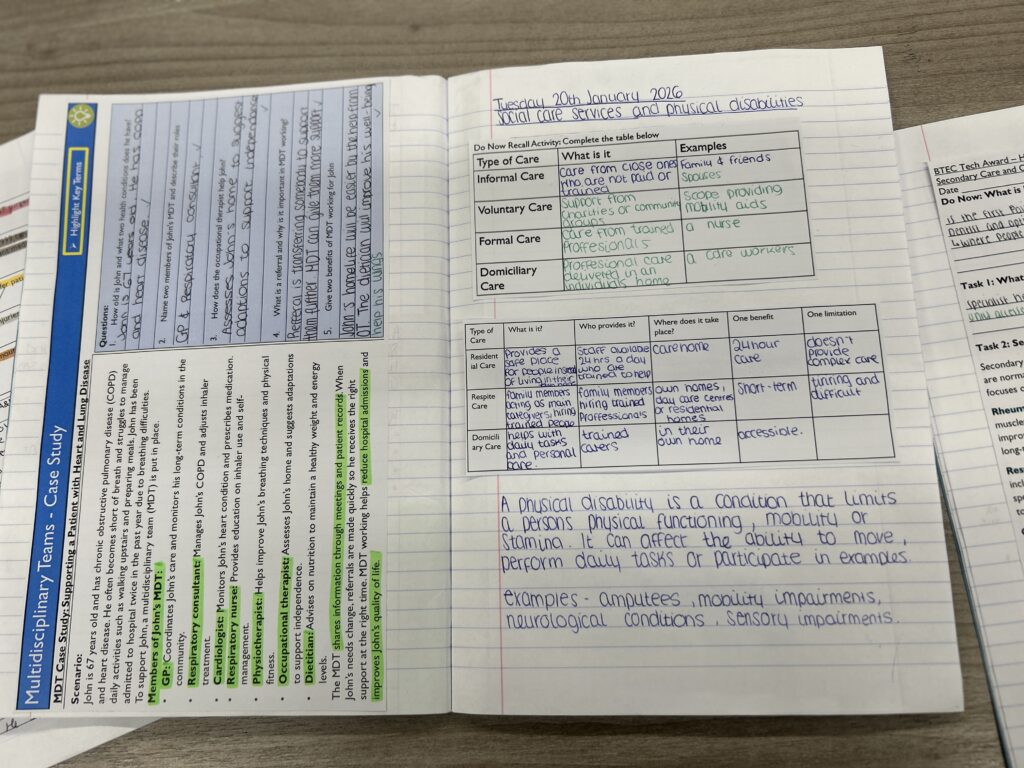 Multidisciplinary Teams - Case Study
➤ Highlight Key Terms
MDT Case Study: Supporting a Patient with Heart and Lung Disease
Scenario:
John is 67 years old and has chronic obstructive pulmonary disease (COPD)
and heart disease. He often becomes short of breath and struggles to manage
daily activities such as walking upstairs and preparing meals. John has been
admitted to hospital twice in the past year due to breathing difficulties.
To support John, a multidisciplinary team (MDT) is put in place.
Members of John's MDT:
• GP: Coordinates John's care and monitors his long-term conditions in the
community.
• Respiratory consultant: Manages John's COPD and adjusts inhaler
treatment.
• Cardiologist: Monitors John's heart condition and prescribes medication.
• Respiratory nurse: Provides education on inhaler use and self-
management.
• Physiotherapist: Helps improve John's breathing techniques and physical
fitness.
• Occupational therapist: Assesses John's home and suggests adaptations
to support independence.
• Dietitian: Advises on nutrition to maintain a healthy weight and energy
levels.
The MDT shares information through meetings and patient records. When
John's needs change, referrals are made quickly so he receives the right
support at the right time. MDT working helps reduce hospital admissions and
improves John's quality of life.
Questions:
1. How old is John and what two health conditions does he have?
John is 67 years old. He has COPD
and heart disease. ✓
2. Name two members of John's MDT and describe their roles
GP & Respiratory consultant ✓
3. How does the occupational therapist help John?
Assesses John's home to suggest
adaptions to support independence ✓
4. What is a referral and why is it important in MDT working?
Refferal is transferring somebody to support
them further MDT can give them more support ✓
5. Give two benefits of MDT working for John
John's homelife will be easier by the help from
OT. The dietician will improve his well-being
help his lungs ✓
Tuesday 20th January 2026
Social care services and physical disabilities
Do Now Recall Activity: Complete the table below
Type of Care What is it Examples
Informal Care care from close ones who are not paid or trained Family & friends Spouses
Voluntary Care Support from charities or community groups Scope providing mobility aids
Formal Care care from trained Proffesionals a nurse
Domiciliary Care Proffesional care delivered in an individuals home a care workers
Type of Care What is it? Who provides it? Where does it take place? One benefit One limitation
Residential Care Provides a safe place for people instead of living in their Staff available 24 hrs a day who are trained to help care home 24 hour care doesn't provide complex care
Respite Care family members being as main caregivers, hiring trained people family members hiring trained Proffessionals own homes, day care centres or residential homes short-term tiring and difficult
Domiciliary Care helps with daily tasks and personal care. trained carers in their own home accessible.
A physical disability is a condition that limits
a persons physical functioning, mobility or
stamina. It can affect the ability to move,
perform daily tasks or participate in examples.
examples - amputees, mobility impairments,
neurological conditions, sensory impairments.
BTEC Tech Award – H
Secondary Care and C
Date
Do Now: What is
is the first poi
Task 1: What
specialist h
Task 2: Se
Secondary
are norma
focuses o
Rheum
long-
Res